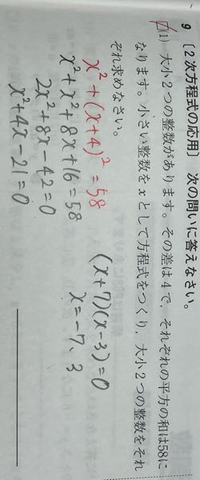 9 〔2次方程式の応用〕 次の問いに答えなさい。
(1) 大小2つの整数があります。その差は4で、それぞれの平方の和は58に
なります。小さい整数をxとして方程式をつくり、大小2つの整数をそれ
ぞれ求めなさい。
x²+(x+4)²=58
x²+x²+8x+16=58
2x²+8x-42=0
x²+4x-21=0
(x+7)(x-3)=0
x=-7、3